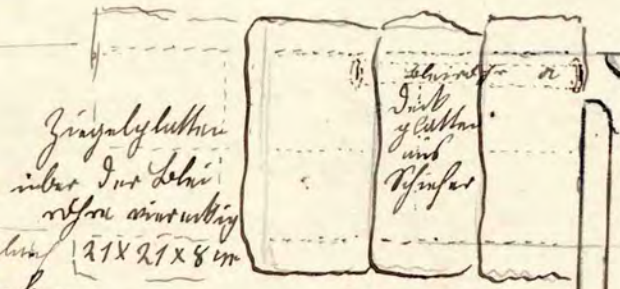 Ziegelplatten
über der Blei
röhre viereckig
21 x 21 x 8 cm
Bleirohr a
Deck
platten
aus
Schiefer